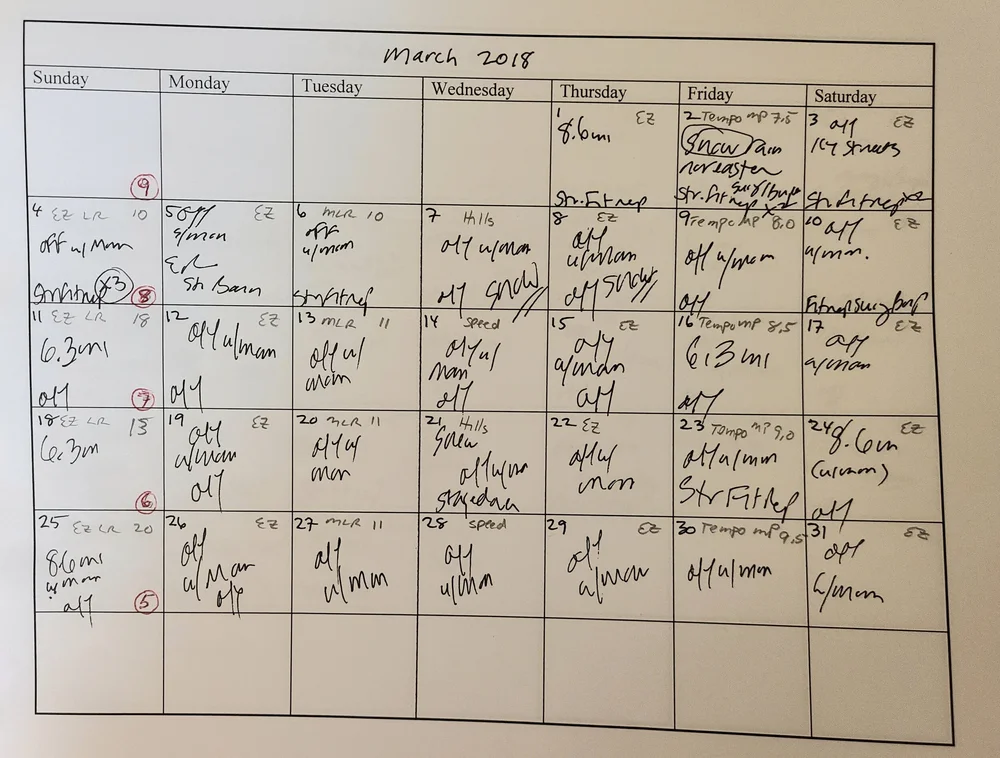 March 2018
Sunday Monday Tuesday Wednesday Thursday Friday Saturday
9
1 EZ
8.6mi
Str.Fitrep
2 Tempo MP 7.5
Snow rain
noreaster
Str.Fitrep x2
3 off EZ
Icy Streets
Str.Fitrep x2
4 EZ LR 10
off w/Mom
StrFitrep x3
8
5 off EZ
w/mom
6 MLR 10
off
w/mom
StrFitrep
7 Hills
off w/mom
off SNOW
8 EZ
off
w/mom
off SNOW
9 Tempo MP 8.0
off w/mom
off
10 off EZ
w/mom.
11 EZ LR 18
6.3mi
off
7
12 EZ
off w/mom
off
13 MLR 11
off w/
mom
14 speed
off w/
mom
off
15 EZ
off
w/mom
off
16 Tempo MP 8.5
6.3 mi
off
17 EZ
off
w/mom
18 EZ LR 13
6.3m
6
19 EZ
off
w/mom
off
20 MLR 11
off w/
mom
21 Hills
Snow
off w/mom
22 EZ
off w/
mom
23 Tempo MP 9.0
off w/mom
Str Fit Rep
24 EZ
8.6m
(w/mom)
off
25 EZ LR 20
8.6mi
w/mom
off
5
26 EZ
off
w/Mom
off
27 MLR 11
off
w/mom
28 speed
off
w/mom
29 EZ
off
w/mom
30 Tempo MP 9.5
off w/mom
31 EZ
off
w/mom